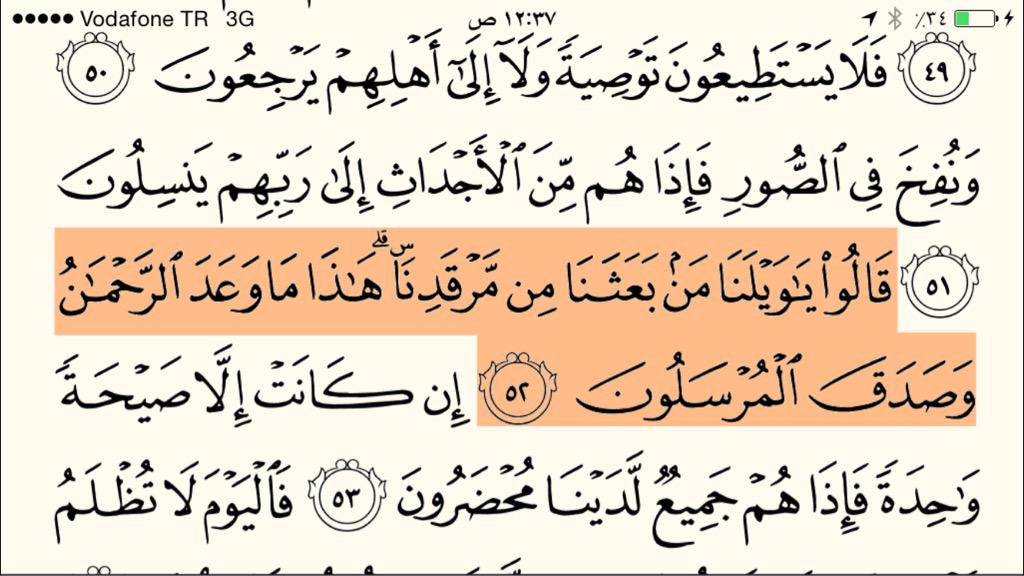 Vodafone TR 3G ١٢:٣٧ ص ٪٣٤
٤٩ فَلَا يَسْتَطِيعُونَ تَوْصِيَةً وَلَآ إِلَىٰٓ أَهْلِهِمْ يَرْجِعُونَ ٥٠
وَنُفِخَ فِى ٱلصُّورِ فَإِذَا هُم مِّنَ ٱلْأَجْدَاثِ إِلَىٰ رَبِّهِمْ يَنسِلُونَ
٥١ قَالُوا۟ يَـٰوَيْلَنَا مَنۢ بَعَثَنَا مِن مَّرْقَدِنَا ۜ ۗ هَـٰذَا مَا وَعَدَ ٱلرَّحْمَـٰنُ
وَصَدَقَ ٱلْمُرْسَلُونَ ٥٢ إِن كَانَتْ إِلَّا صَيْحَةً
وَٰحِدَةً فَإِذَا هُمْ جَمِيعٌ لَّدَيْنَا مُحْضَرُونَ ٥٣ فَٱلْيَوْمَ لَا تُظْلَمُ